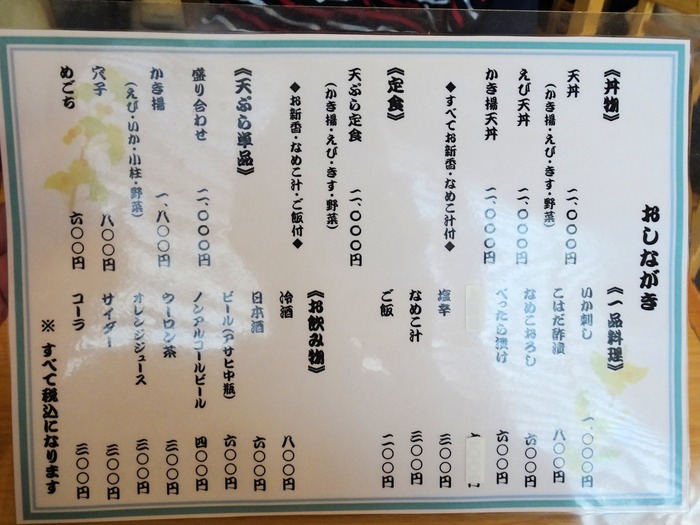 おしながき
《丼物》
天丼 二、〇〇〇円
(かき揚・えび・きす・野菜)
えび天丼 二、〇〇〇円
かき揚天丼 二、〇〇〇円
◆すべてお新香・なめこ汁付◆
《定食》
天ぷら定食 二、〇〇〇円
(かき揚・えび・きす・野菜)
◆お新香・なめこ汁・ご飯付◆
《天ぷら単品》
盛り合わせ 二、〇〇〇円
かき揚 一、八〇〇円
(えび・いか・小柱・野菜)
穴子 八〇〇円
めごち 六〇〇円
《一品料理》
いか刺し 一、〇〇〇円
こはだ酢漬 八〇〇円
なめこおろし 六〇〇円
べったら漬け 六〇〇円
塩辛 三〇〇円
なめこ汁 三〇〇円
ご飯 二〇〇円
《お飲み物》
冷酒 八〇〇円
日本酒 六〇〇円
ビール(アサヒ中瓶) 六〇〇円
ノンアルコールビール 四〇〇円
ウーロン茶 三〇〇円
オレンジジュース 三〇〇円
サイダー 三〇〇円
コーラ 三〇〇円
※ すべて税込になります